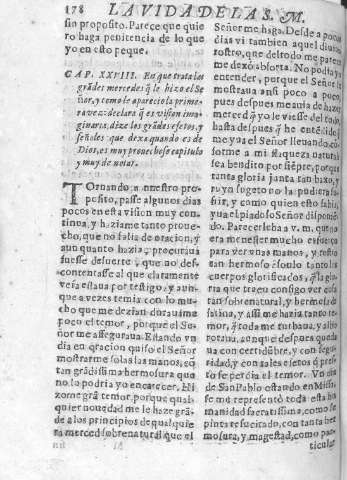 178 LA VIDA DE LA S. M.
sin proposito. Parece que quie
ro haga penitencia de lo que
yo en esto peque.
CAP. XXVIII. En que trata las
grãdes mercedes q̃ le hizo el Se
ñor, y como le aparecio la prime-
ra vez: declara q̃ es vision ima-
ginaria, dize los grãdes efetos, y
señales que dexa quando es de
Dios, es muy prouechoso capitulo
y muy de notar.
TOrnando a nuestro pro-
posito, passe algunos dias
pocos en esta vision muy con-
tinua, y haziame tanto proue-
cho, que no salia de oracion, y
aun quanto hazia, procuraua
fuesse de suerte, que no des-
contentasse al que claramente
veia estaua por testigo: y aun-
que a vezes temia con lo mu-
cho que me dezian, durauame
poco el temor, porque el Se-
ñor me asseguraua. Estando vn
dia en oracion quiso el Señor
mostrarme solas las manos, cõ
tan grãdissima hermosura que
no lo podria yo encarecer. Hi
zome grã temor, porque qual-
quier nouedad me le haze grã-
de a los principios de qualquie
ra merced sobrenatural que el
Señor me haga. Desde a pocos
dias vi tambien aquel diuino
rostro, que del todo me parece
me dexò absorta. No podia yo
entender, porque el Señor se
mostraua ansi poco a poco,
pues despues me auia de hazer
merced q̃ yo le viesse del todo,
hasta despues q̃ he entẽdido
me yua el Señor lleuando cõ-
forme a mi flaqueza natural:
sea bendito por siẽpre, porque
tanta gloria junta tan baxo, y
ruyn sugeto no la pudiera su-
frir, y como quien esto sabia,
yua el piadoso Señor disponiẽ-
do. Parecerleha a v. m. que no
era menester mucho esfuerço
para ver vnas manos, y rostro
tan hermoso: sonlo tanto los
cuerpos glorificados, q̃ la glo-
ria que traen consigo ver cosa
tan sobrenatural, y hermosa de
satina, y assi me hazia tanto te-
mor, q̃ toda me turbaua, y albo
rotaua, aunque despues queda
ua con certidũbre, y con segu-
ridad, y con tales efetos q̃ pres-
to se perdia el temor. Vn dia
de San Pablo estando en Missa,
se me representò toda esta hu-
manidad sacratissima, como se
pinta resucitado, con tanta her
mosura, y magestad, como par-
ticular